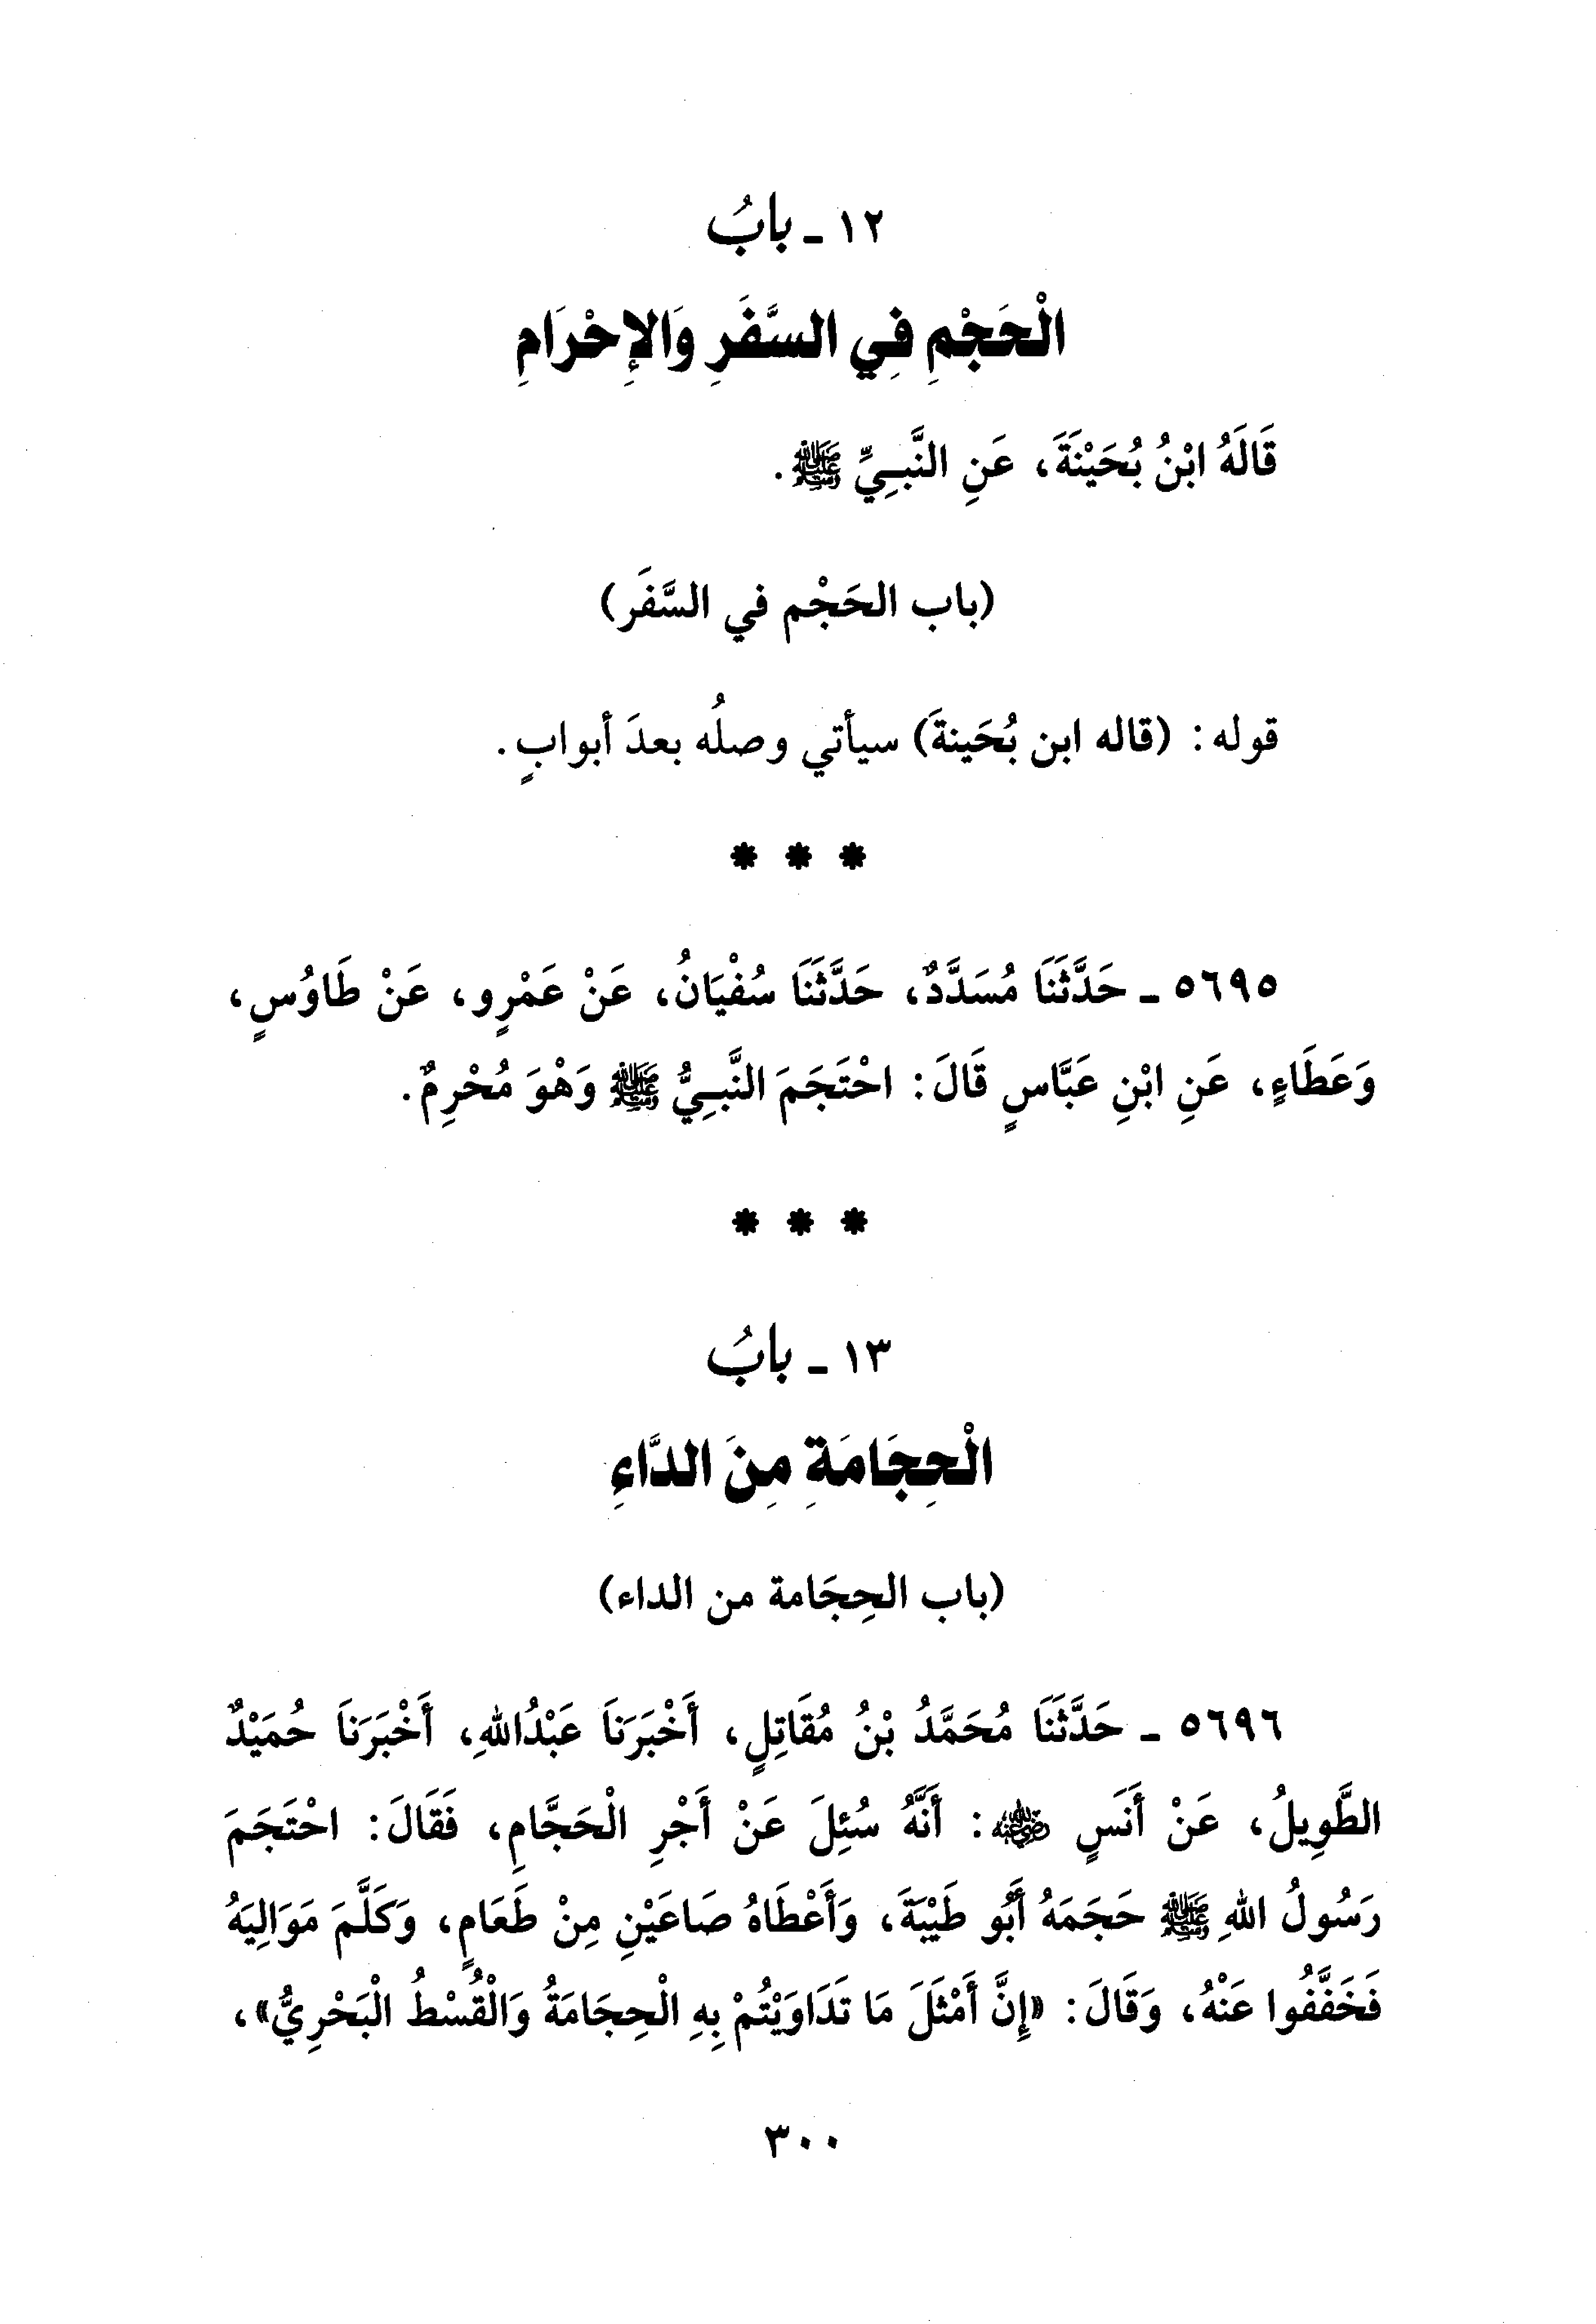 ١٢ - بابُ
الْحَجْمِ فِي السَّفَرِ وَالإِحْرَامِ
قَالَهُ ابْنُ بُحَيْنَةَ، عَنِ النَّبِيِّ ﷺ.
(باب الحَجْم في السَّفَر)
قوله: (قاله ابن بُحَينةَ) سيأتي وصلُه بعدَ أبوابٍ.
* * *
٥٦٩٥ - حَدَّثَنَا مُسَدَّدٌ، حَدَّثَنَا سُفْيَانُ، عَنْ عَمْرٍو، عَنْ طَاوُسٍ،
وَعَطَاءٍ، عَنِ ابْنِ عَبَّاسٍ قَالَ: احْتَجَمَ النَّبِيُّ ﷺ وَهْوَ مُحْرِمٌ.
* * *
١٣ - بابُ
الْحِجَامَةِ مِنَ الدَّاءِ
(باب الحِجَامة من الداء)
٥٦٩٦ - حَدَّثَنَا مُحَمَّدُ بْنُ مُقَاتِلٍ، أَخْبَرَنَا عَبْدُاللهِ، أَخْبَرَنَا حُمَيْدٌ
الطَّوِيلُ، عَنْ أَنَسٍ رضي الله عنه: أَنَّهُ سُئِلَ عَنْ أَجْرِ الْحَجَّامِ، فَقَالَ: احْتَجَمَ
رَسُولُ اللهِ ﷺ حَجَمَهُ أَبُو طَيْبَةَ، وَأَعْطَاهُ صَاعَيْنِ مِنْ طَعَامٍ، وَكَلَّمَ مَوَالِيَهُ
فَخَفَّفُوا عَنْهُ، وَقَالَ: «إِنَّ أَمْثَلَ مَا تَدَاوَيْتُمْ بِهِ الْحِجَامَةُ وَالْقُسْطُ الْبَحْرِيُّ»،
٣٠٠